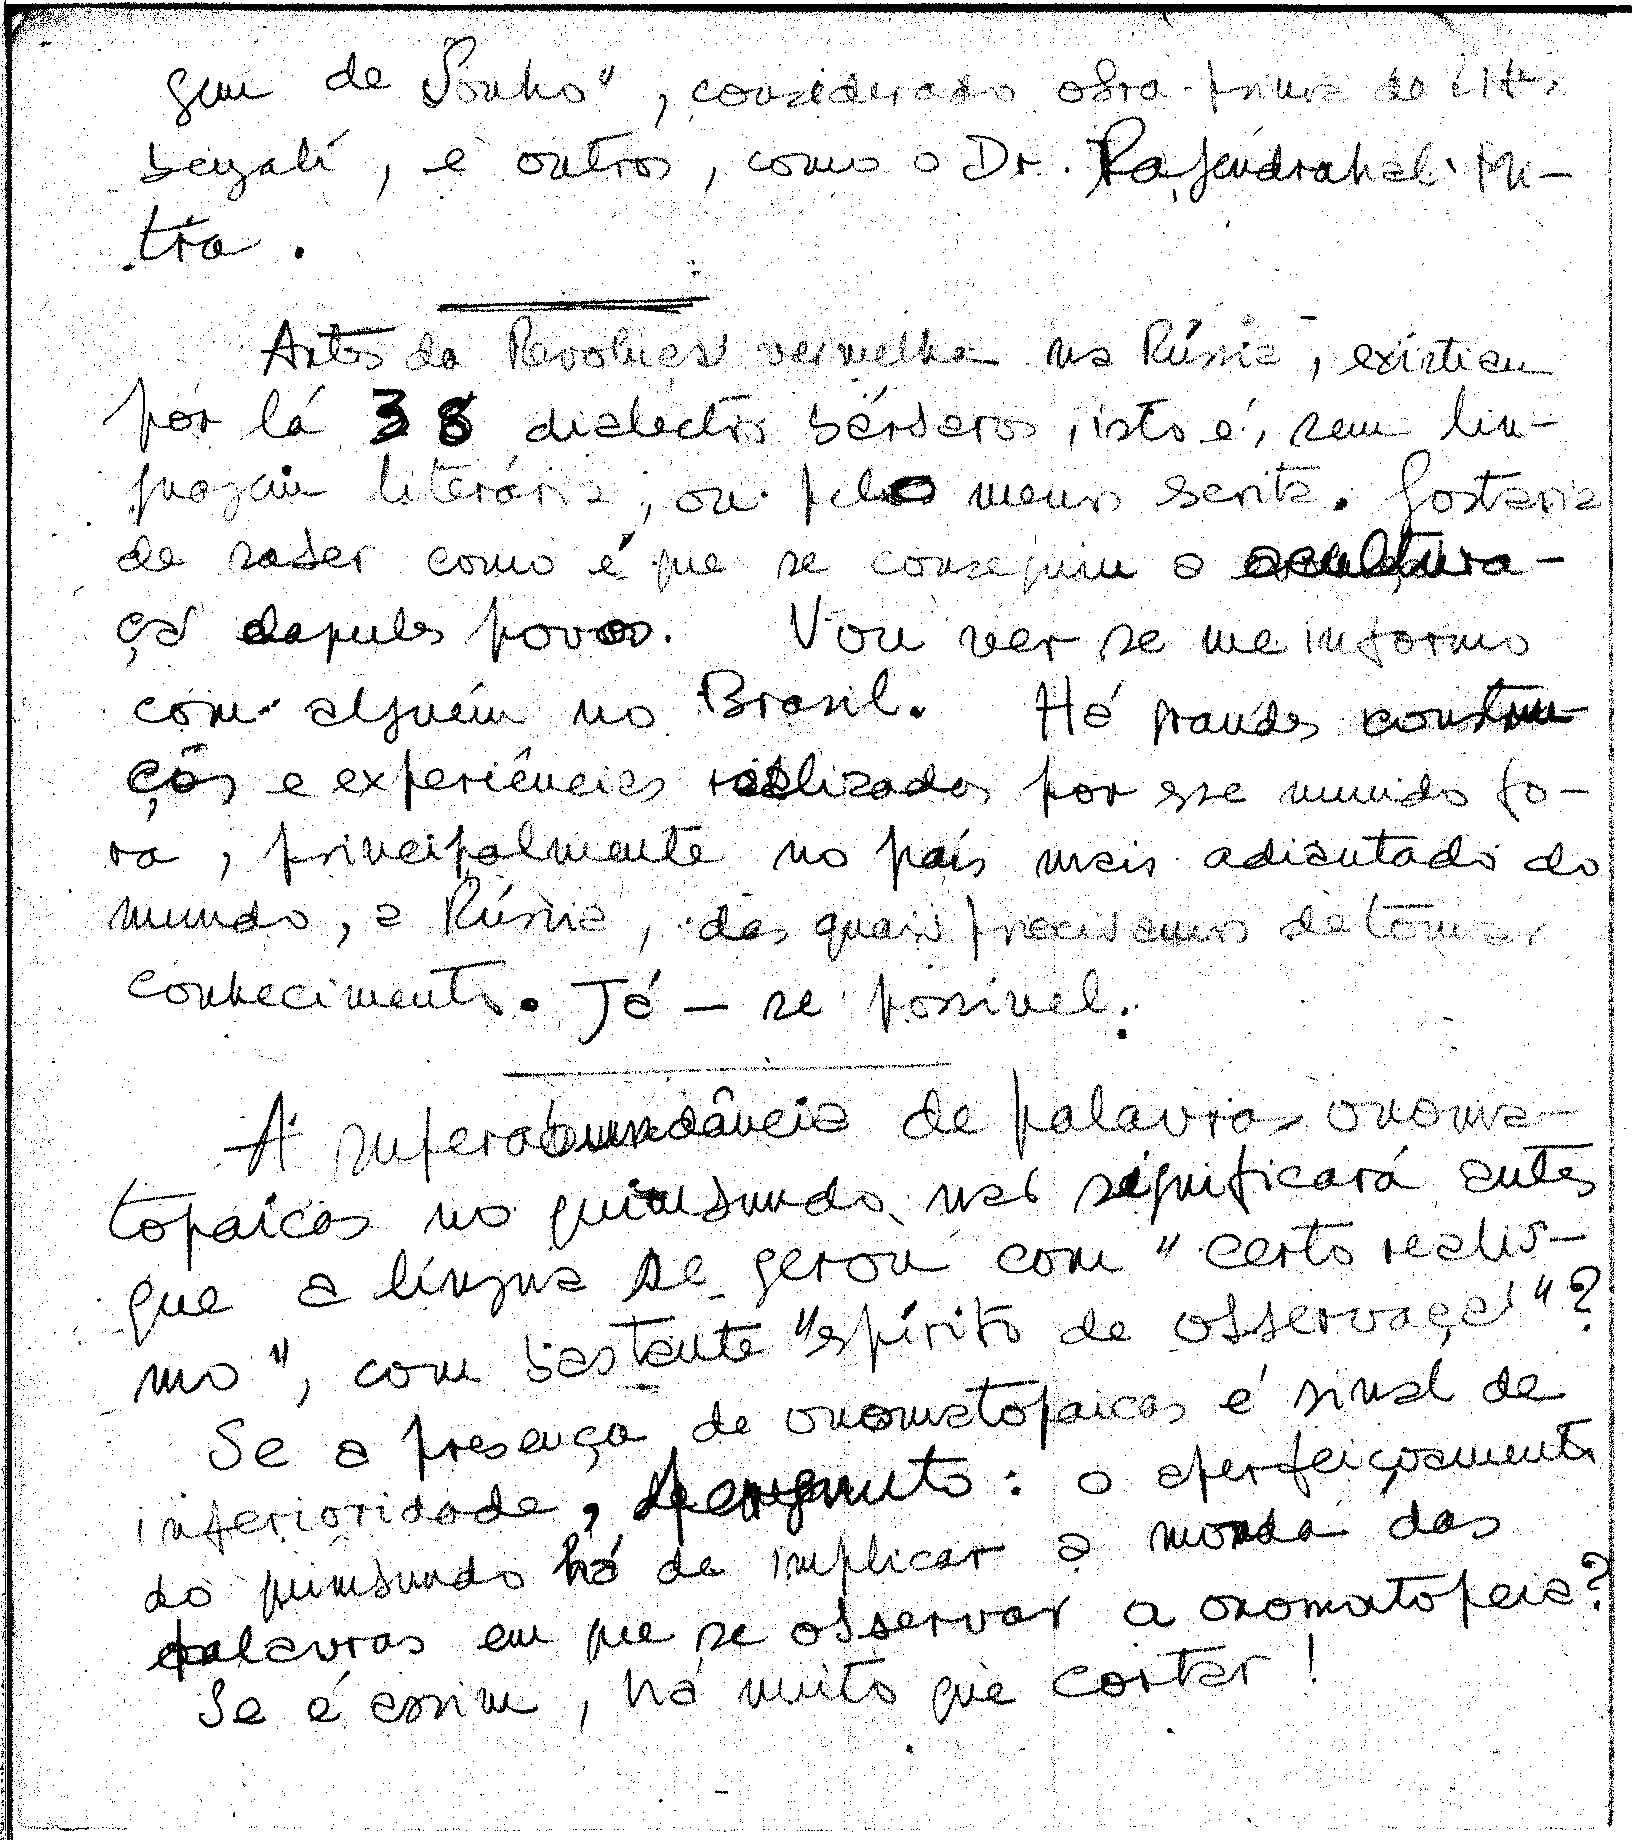 gem de Sonho", considerado obra-prima da lit.
bengali, e outros, como o Dr. Rajendrahal Mi-
tra.
Antes da Revolução vermelha na Rússia, existiam
por lá 38 dialectos bárbaros, isto é, sem lin-
guagem literária, ou pelo menos escrita. Gostaria
de saber como é que se conseguiu a acultura-
ção daqueles povos. Vou ver se me informo
com alguém no Brasil. Há grandes constru-
ções e experiências realizadas por esse mundo fo-
ra, principalmente no país mais adiantado do
mundo, a Rússia, das quais precisamos de tomar
conhecimento. Já - se possível.
A superabundância de palavras onoma-
topaicas no quimbundo não significará antes
que a língua se gerou com "certo realis-
mo", com bastante "espírito de observação"?
Se a presença de onomatopaicas é sinal de
inferioridade, pergunto: o aperfeiçoamento
do quimbundo há de implicar a monda das
palavras em que se observar a onomatopeia?
Se é assim, há muito que cortar!